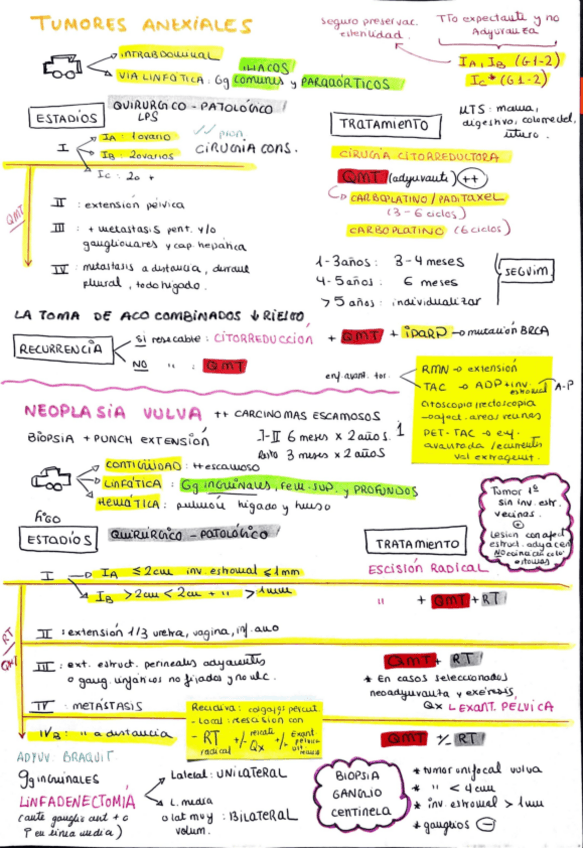 TUMORES ANEXIALES
Seguro preservac.
esterilidad.
TTo expectante y no
Adyuvancia
IA, IB (G1-2)
IC* (G1-2)
INTRABDOMINAL
ILIACOS
VIA LINFÁTICA: Gg comunes y PARAAÓRTICOS
ESTADÍOS
QUIRÚRGICO - PATOLÓGICO
LPS
I
IA: 1 ovario
IB: 2 ovarios
IC: 2o +
CIRUGÍA CONS.
QMT
II : extensión pélvica
III : + metastasis perit. y/o
ganglionares y cap. hepática
IV : metástasis a distancia, derrame
pleural, todo hígado.
MTS: mama,
digestivo, colon
útero.
TRATAMIENTO
CIRUGÍA CITORREDUCTORA
QMT (adyuvante) (++)
CARBOPLATINO / PACLITAXEL
(3-6 ciclos)
CARBOPLATINO (6 ciclos)
1-3 años: 3-4 meses
4-5 años: 6 meses
> 5 años: individualizar
SEGUIM.
LA TOMA DE ACO COMBINADOS ↓ RIESGO
RECURRENCIA
SI resecable: CITORREDUCCIÓN + QMT + iPARP → mutación BRCA
NO " : QMT
RMN → extensión
TAC → ADP + inv. estromal
A-P
citoscopia/rectoscopia
→ afect. areas vecinas
PET-TAC → enf.
avanzada/recurrentes
val extragenit.
NEOPLASIA VULVA ++ CARCINOMAS ESCAMOSOS
BIOPSIA + PUNCH EXTENSIÓN
I-II 6 meses x 2 años. 1
Resto 3 meses x 2 años
CONTIGÜIDAD: ++ escamoso
LINFÁTICA: Gg inguinales, fem. sup. y PROFUNDOS
HEMÁTICA: pulmón hígado y hueso
FIGO
ESTADÍOS
QUIRÚRGICO - PATOLÓGICO
TRATAMIENTO
Tumor 1º
sin inv. estr.
vecinas.
+
Lesion con afect
estruct. adyacen
I
IA ≤ 2cm inv. estromal ≤ 1mm
ESCISIÓN RADICAL
IB > 2cm < 2cm + " > 1mm
" + QMT + RT
RT / QMT
II : extensión 1/3 uretra, vagina, inf. ano
III : ext. estruct. perineales adyacentes
o gang. linfáticos no fijados y no ulc.
QMT + RT
* En casos seleccionados
neoadyuvanta y exéresis,
Qx EXANT. PELVICA
IV : METÁSTASIS
IVB : " a distancia
Recidiva: colgajos périut.
- Local: rescision con
- RT radical +/- rescate Qx +/- Exant. pélvica
QMT +/- RT
ADYUV. BRAQUIT.
gg inguinales
LINFADENECTOMÍA
(ante ganglio ant + o
P en línea media)
Lateral: UNILATERAL
L. media
o lat muy : BILATERAL
volum.
BIOPSIA
GANGLIO
CENTINELA
* tumor unifocal vulva
* " < 4cm
* inv. estromal > 1mm
* ganglios (-)